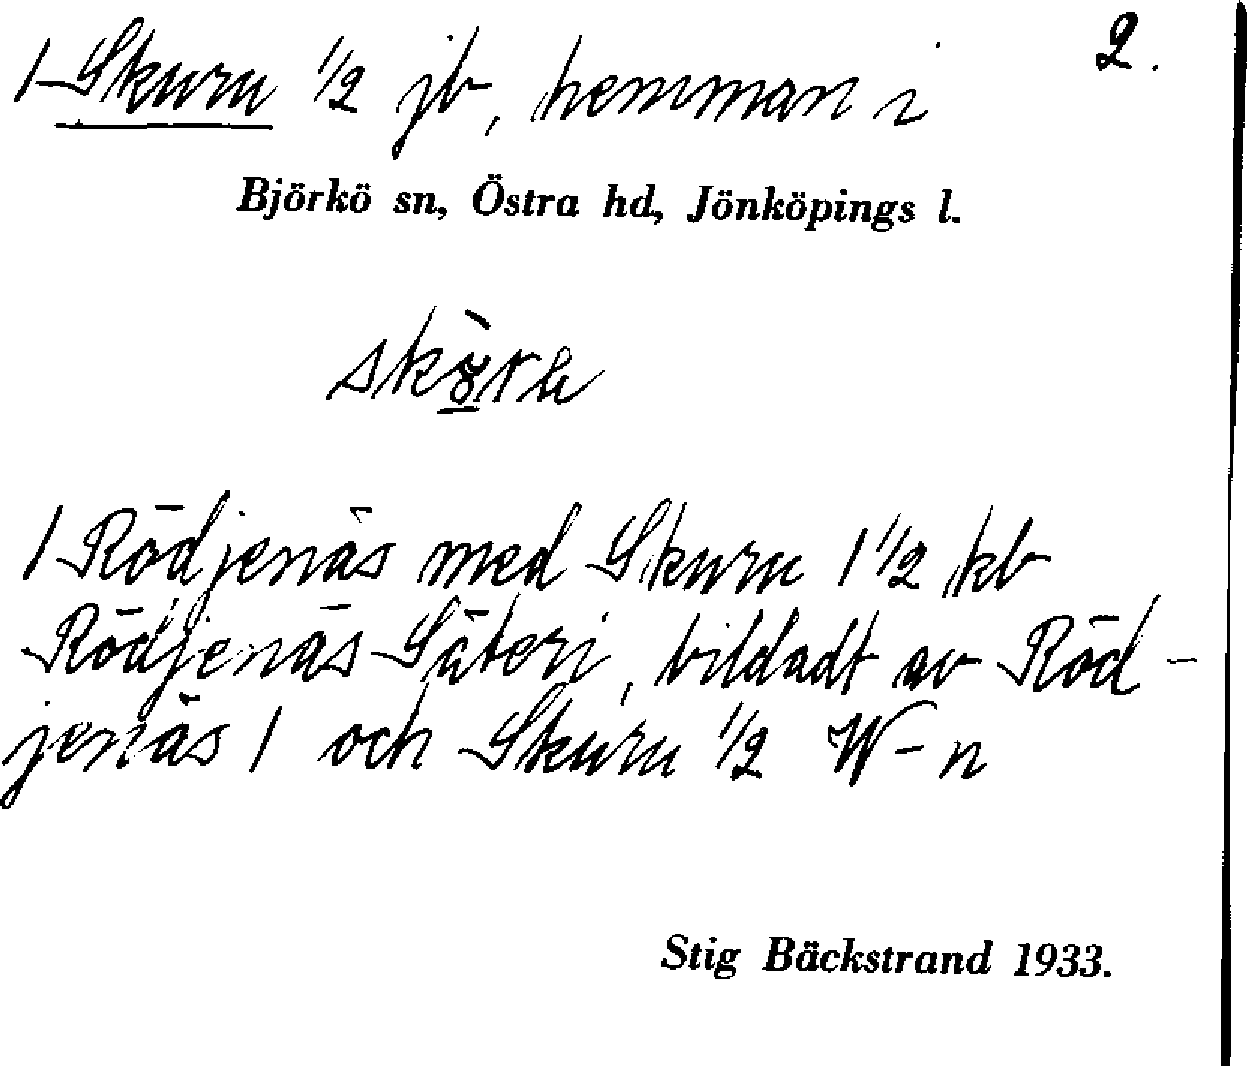 2.
/ Skuru 1/2 jb, hemman i
Björkö sn, Östra hd, Jönköpings l.
/ Rödjenäs med Skuru 1 1/2 kb
Rödjenäs Säteri, bildadt av Röd-
jenäs 1 och Skuru 1/2 W-n
Stig Bäckstrand 1933.